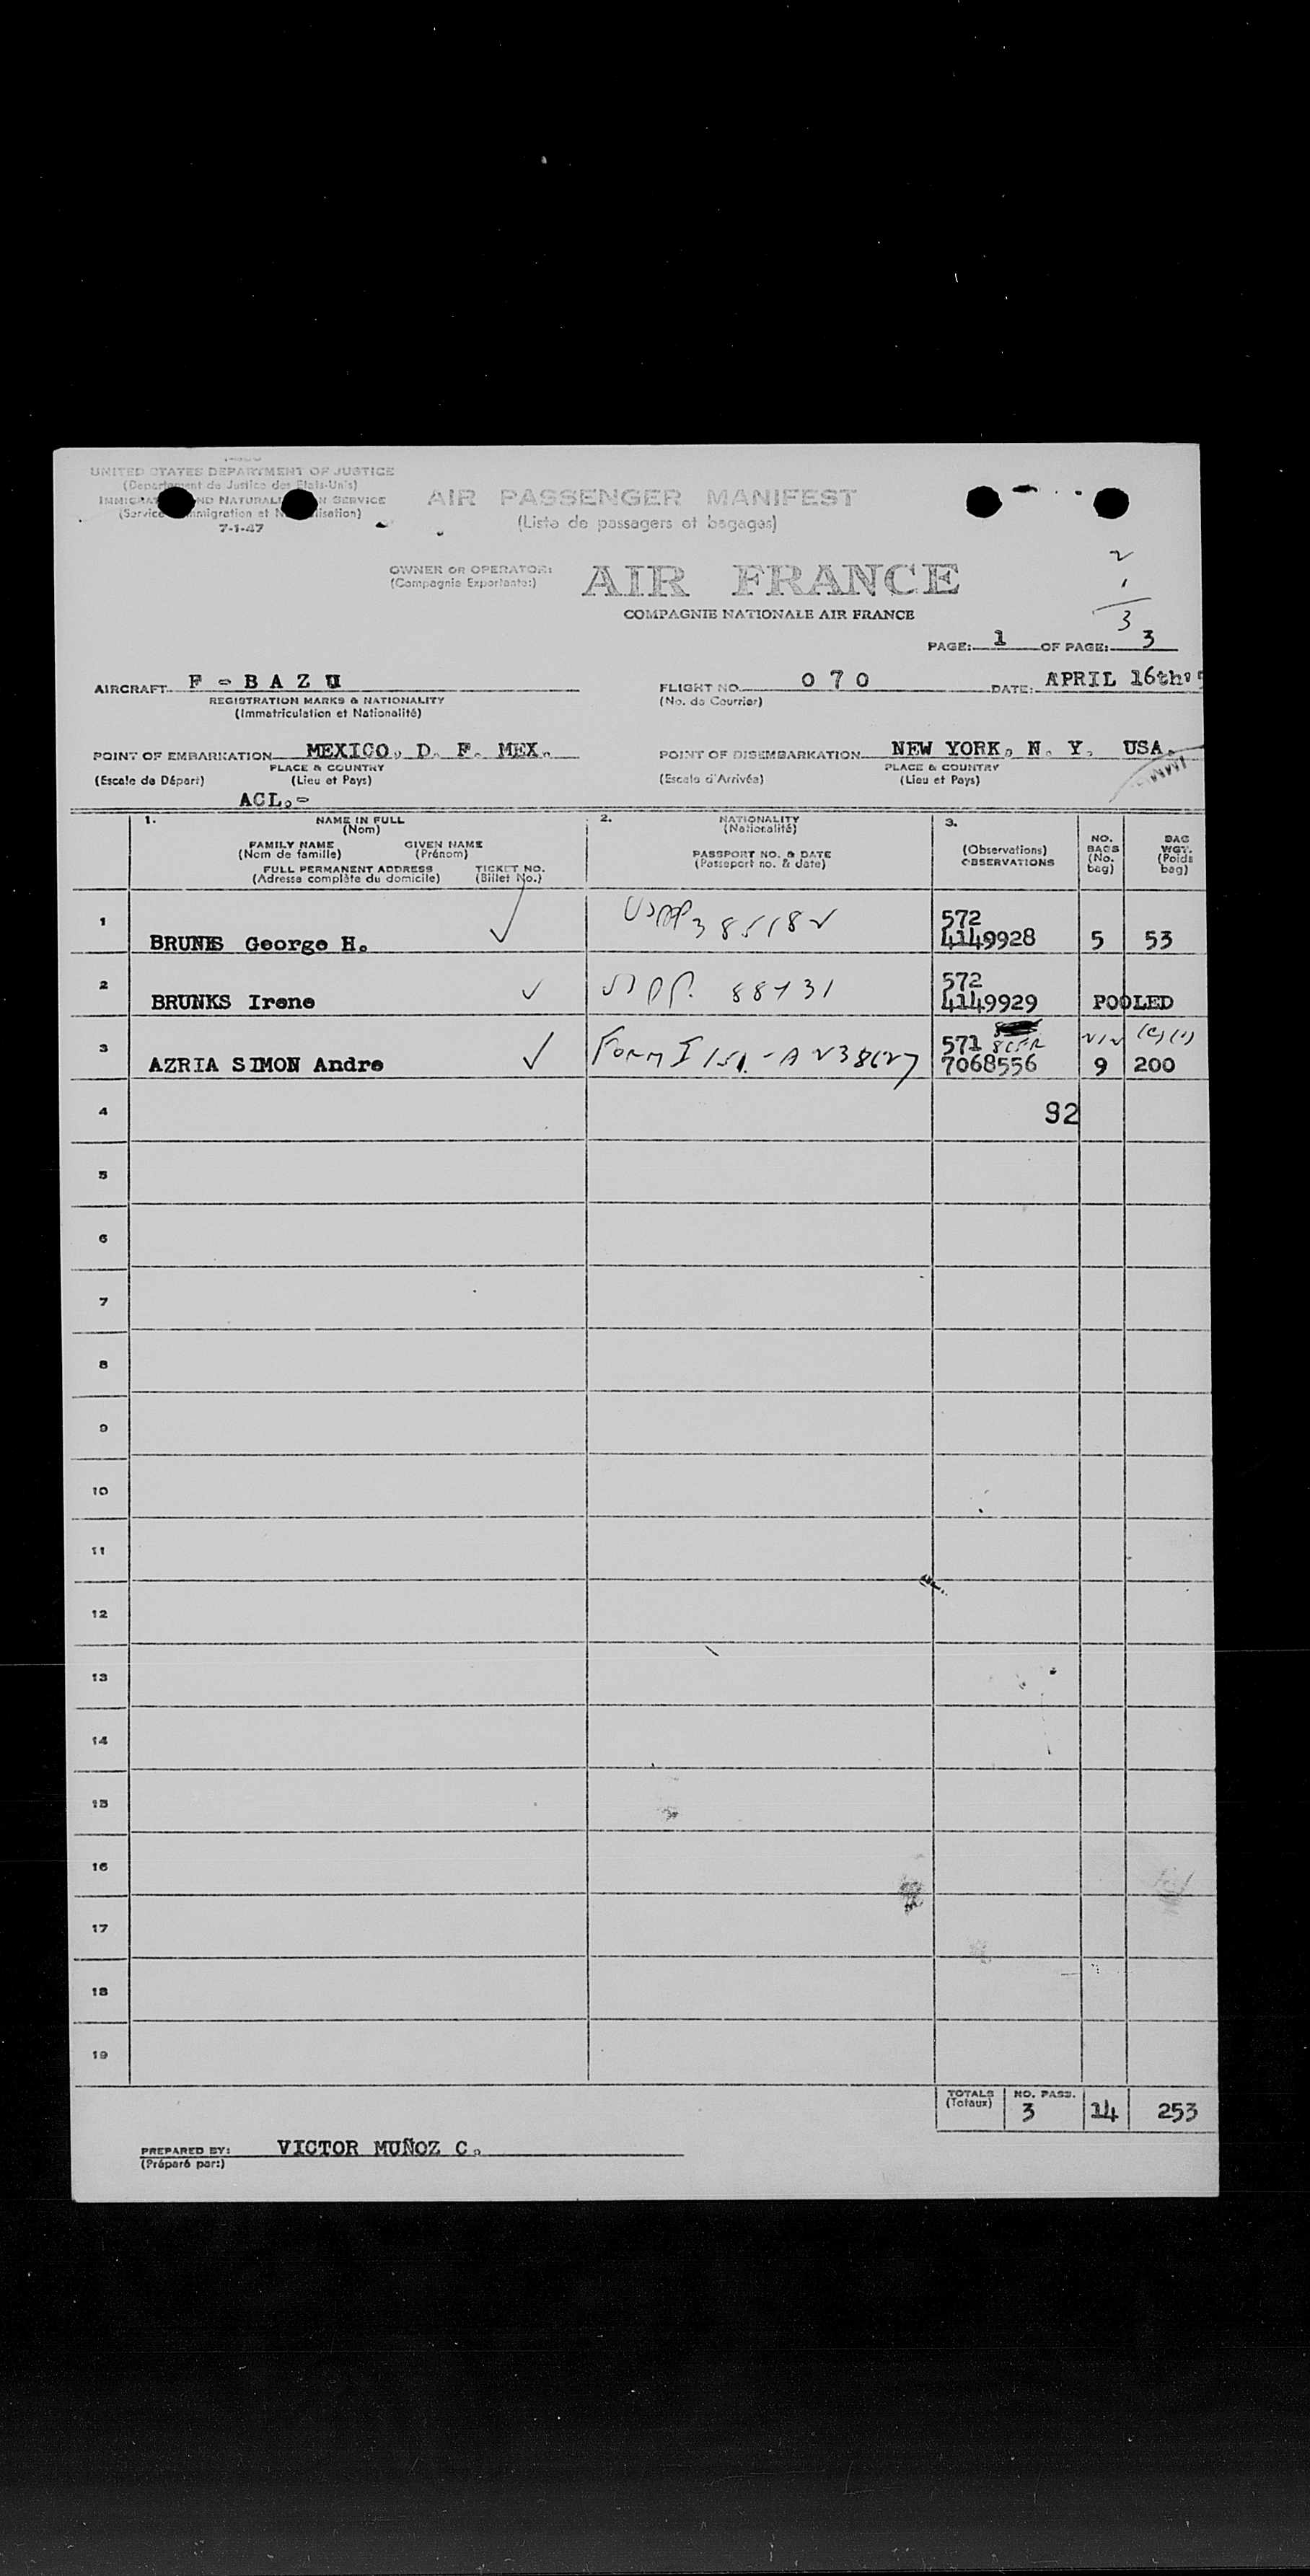 UNITED STATES DEPARTMENT OF JUSTICE
(Departement de Justice des Etats-Unis)
IMMIGRATION AND NATURALIZATION SERVICE
(Service Immigration et Naturalisation)
7-1-47
AIR PASSENGER MANIFEST
(Liste de passagers et bagages)
OWNER OR OPERATOR:
(Compagnie Exportante:)
AIR FRANCE
COMPAGNIE NATIONALE AIR FRANCE
2
1
3
PAGE: 1 OF PAGE: 3
AIRCRAFT F - B A Z U
REGISTRATION MARKS & NATIONALITY
(Immatriculation et Nationalité)
FLIGHT NO. 0 7 0
(No. de Courrier)
DATE: APRIL 16th'
POINT OF EMBARKATION MEXICO, D. F. MEX.
PLACE & COUNTRY
(Escale de Départ) (Lieu et Pays)
POINT OF DISEMBARKATION NEW YORK, N. Y. USA.
PLACE & COUNTRY
(Escale d'Arrivée) (Lieu et Pays)
ACL.-
1. NAME IN FULL
(Nom)
FAMILY NAME GIVEN NAME
(Nom de famille) (Prénom)
FULL PERMANENT ADDRESS TICKET NO.
(Adresse complète du domicile) (Billet No.)
2. NATIONALITY
(Nationalité)
PASSPORT NO. & DATE
(Passeport no. & date)
3.
(Observations)
OBSERVATIONS
NO. BAGS
(No. bag)
BAG WGT.
(Poids bag)
1 BRUNKS George H. 572
4149928 5 53
2 BRUNKS Irene 88131 572
4149929 POOLED
3 AZRIA SIMON Andre Form I 151 571
7068556 9 200
4 92
5
6
7
8
9
10
11
12
13
14
15
16
17
18
19
TOTALS
(Totaux)
NO. PASS.
3 14 253
PREPARED BY: VICTOR MUÑOZ C.
(Préparé par:)